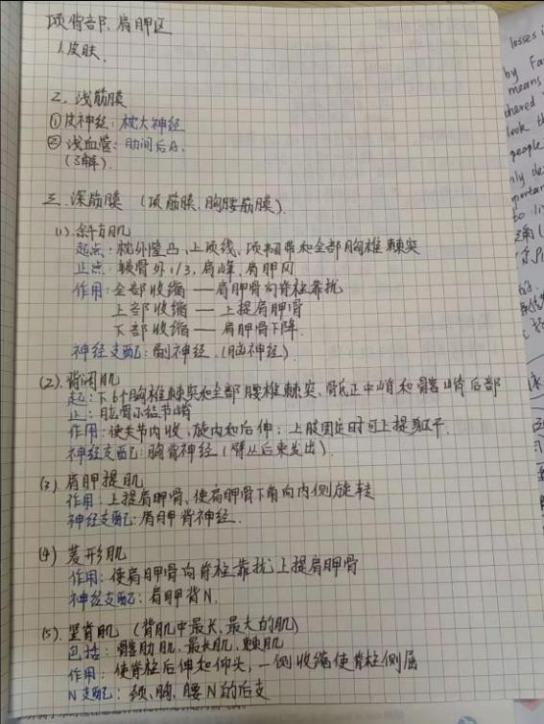 项背部、肩胛区
1.皮肤.
2. 浅筋膜
①皮神经:枕大神经
②浅血管:肋间后A.
(3解).
三.深筋膜 (项筋膜.胸腰筋膜).
(1).斜方肌
起点:枕外隆凸、上项线、项韧带和全部胸椎棘突
止点:锁骨外1/3,肩峰,肩胛冈
作用:全部收缩——肩胛骨向脊柱靠拢
上部收缩——上提肩胛骨
下部收缩——肩胛骨下降.
神经支配:副神经.(脑神经).
(2).背阔肌
起:下6个胸椎棘突和全部腰椎棘突.骶正中嵴和髂嵴后部
止:肱骨小结节嵴
作用:使关节内收,旋内和后伸;上肢固定时可上提躯干.
神经支配:胸背神经(臂丛后束发出).
(3).肩胛提肌
作用:上提肩胛骨,使肩胛骨下角向内侧旋转
神经支配:肩胛背神经.
(4).菱形肌
作用:使肩胛骨向脊柱靠拢上提肩胛骨
神经支配:肩胛背N.
(5).竖脊肌 (背肌中最长,最大的肌)
包括:髂肋肌.最长肌.棘肌
作用:使脊柱后伸和仰头,一侧收缩使脊柱侧屈
N支配:颈、胸、腰N的后支
losses i
by fa
means
shared
look th
people